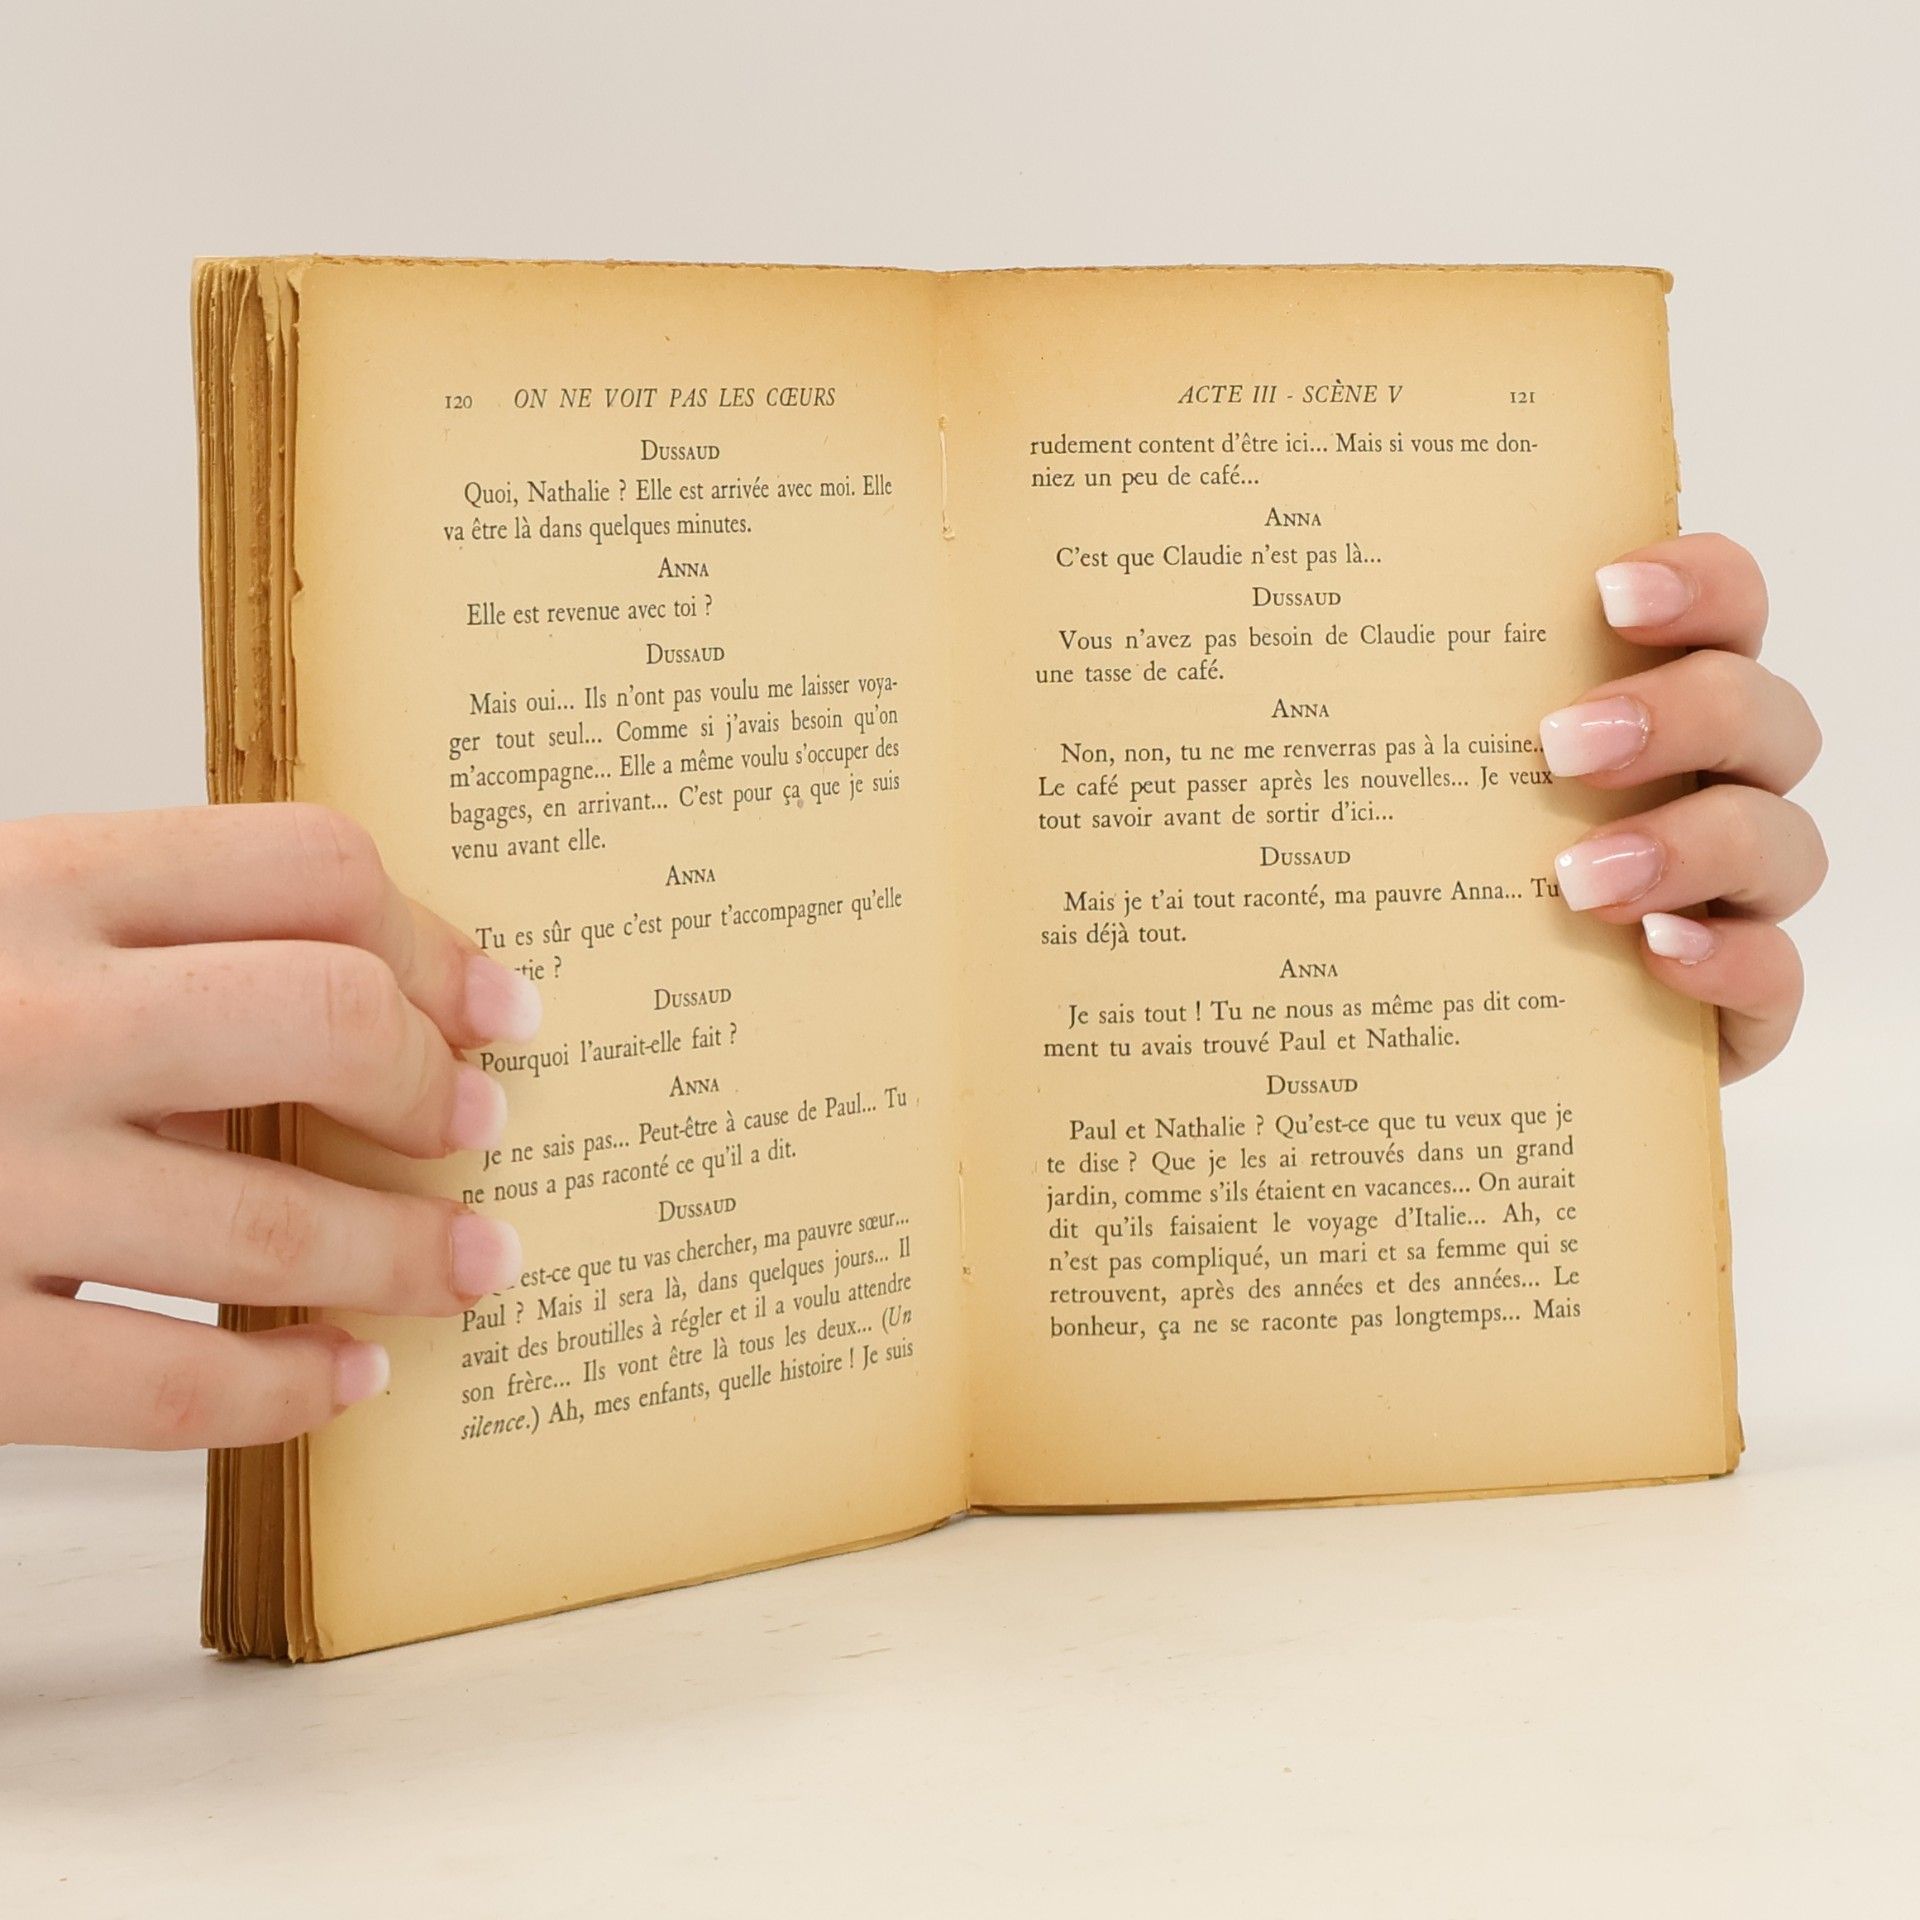 120 ON NE VOIT PAS LES CŒURS
DUSSAUD
Quoi, Nathalie ? Elle est arrivée avec moi. Elle
va être là dans quelques minutes.
ANNA
Elle est revenue avec toi ?
DUSSAUD
Mais oui... Ils n'ont pas voulu me laisser voya-
ger tout seul... Comme si j'avais besoin qu'on
m'accompagne... Elle a même voulu s'occuper des
bagages, en arrivant... C'est pour ça que je suis
venu avant elle.
ANNA
Tu es sûr que c'est pour t'accompagner qu'elle
?
DUSSAUD
Pourquoi l'aurait-elle fait ?
ANNA
Je ne sais pas... Peut-être à cause de Paul... Tu
ne nous a pas raconté ce qu'il a dit.
DUSSAUD
est-ce que tu vas chercher, ma pauvre sœur...
Paul ? Mais il sera là, dans quelques jours... Il
avait des broutilles à régler et il a voulu attendre
son frère... Ils vont être là tous les deux... (Un
silence.) Ah, mes enfants, quelle histoire ! Je suis
ACTE III - SCÈNE V 121
rudement content d'être ici... Mais si vous me don-
niez un peu de café...
ANNA
C'est que Claudie n'est pas là...
DUSSAUD
Vous n'avez pas besoin de Claudie pour faire
une tasse de café.
ANNA
Non, non, tu ne me renverras pas à la cuisine..
Le café peut passer après les nouvelles... Je veux
tout savoir avant de sortir d'ici...
DUSSAUD
Mais je t'ai tout raconté, ma pauvre Anna... Tu
sais déjà tout.
ANNA
Je sais tout ! Tu ne nous as même pas dit com-
ment tu avais trouvé Paul et Nathalie.
DUSSAUD
Paul et Nathalie ? Qu'est-ce que tu veux que je
te dise ? Que je les ai retrouvés dans un grand
jardin, comme s'ils étaient en vacances... On aurait
dit qu'ils faisaient le voyage d'Italie... Ah, ce
n'est pas compliqué, un mari et sa femme qui se
retrouvent, après des années et des années... Le
bonheur, ça ne se raconte pas longtemps... Mais